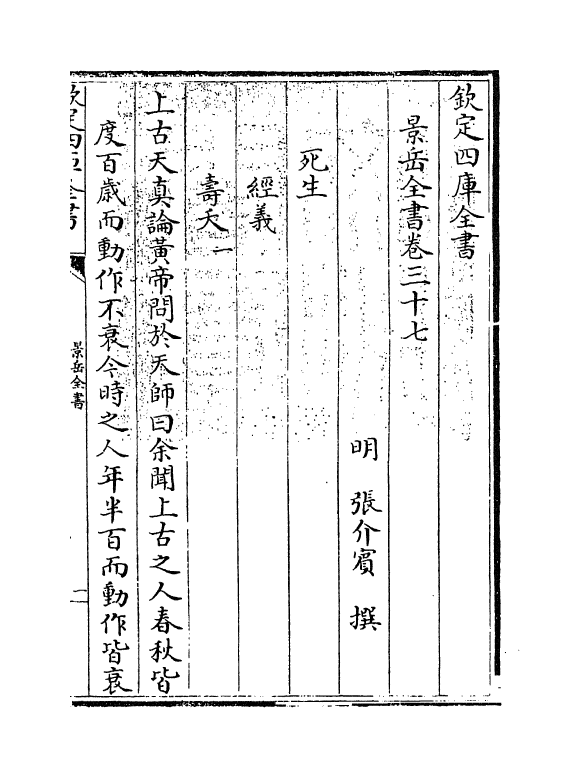 欽定四庫全書
景岳全書卷三十七
明 張介賓 撰
死生
經義
壽夭一
上古天真論黃帝問於天師曰余聞上古之人春秋皆
度百歲而動作不衰今時之人年半百而動作皆衰
欽定四庫全書
景岳全書